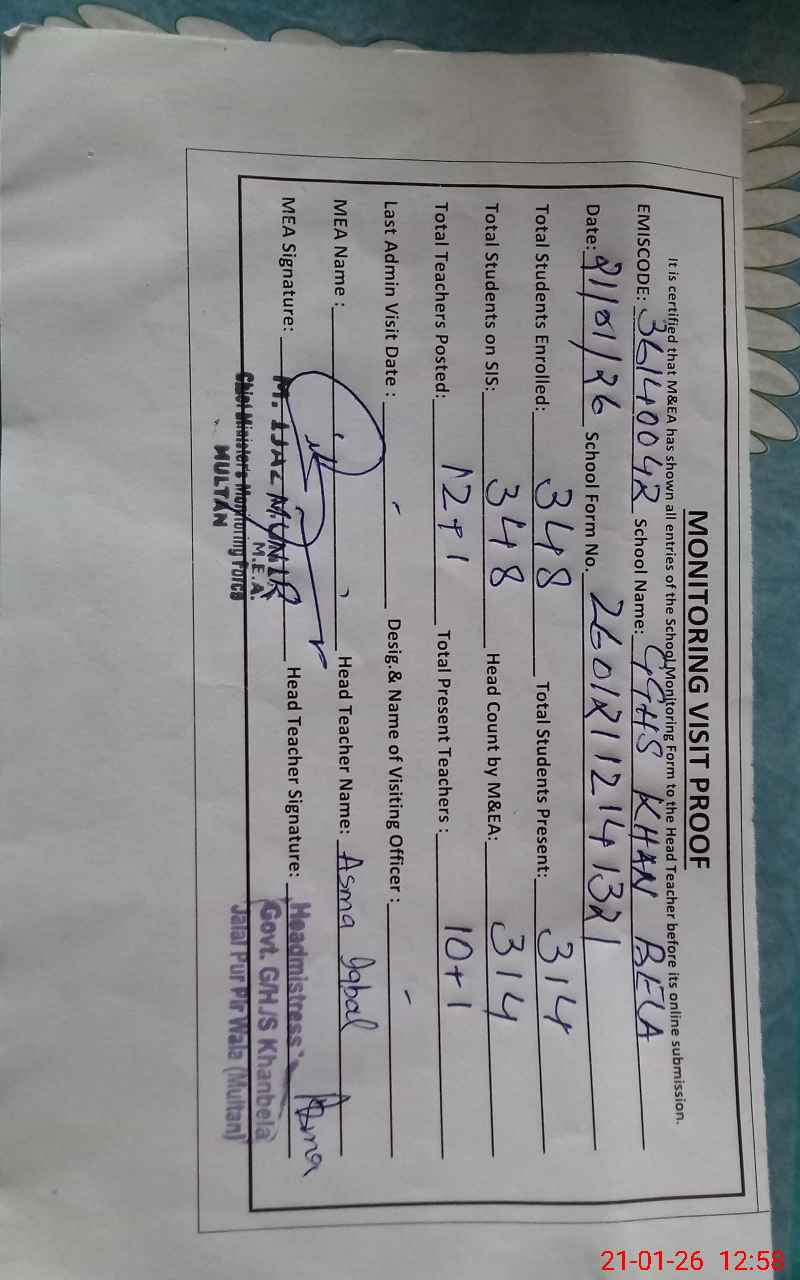 MONITORING VISIT PROOF
It is certified that M&EA has shown all entries of the School Monitoring Form to the Head Teacher before its online submission.
EMISCODE: 36140042 School Name: GGHS KHAN BELA
Date: 21/01/26 School Form No. 26012112141321
Total Students Enrolled: 348 Total Students Present: 314
Total Students on SIS: 348 Head Count by M&EA: 314
Total Teachers Posted: 12+1 Total Present Teachers : 10+1
Last Admin Visit Date : - Desig.& Name of Visiting Officer : -
MEA Name : Head Teacher Name: Asma Iqbal
MEA Signature: Head Teacher Signature: Asma
M. IJAZ MUNIR
M.E.A.
Chief Minister's Monitoring Force
MULTAN
Headmistress
Govt. G/H/S Khanbela
Jalal Pur Pir Wala (Multan)
21-01-26 12:58